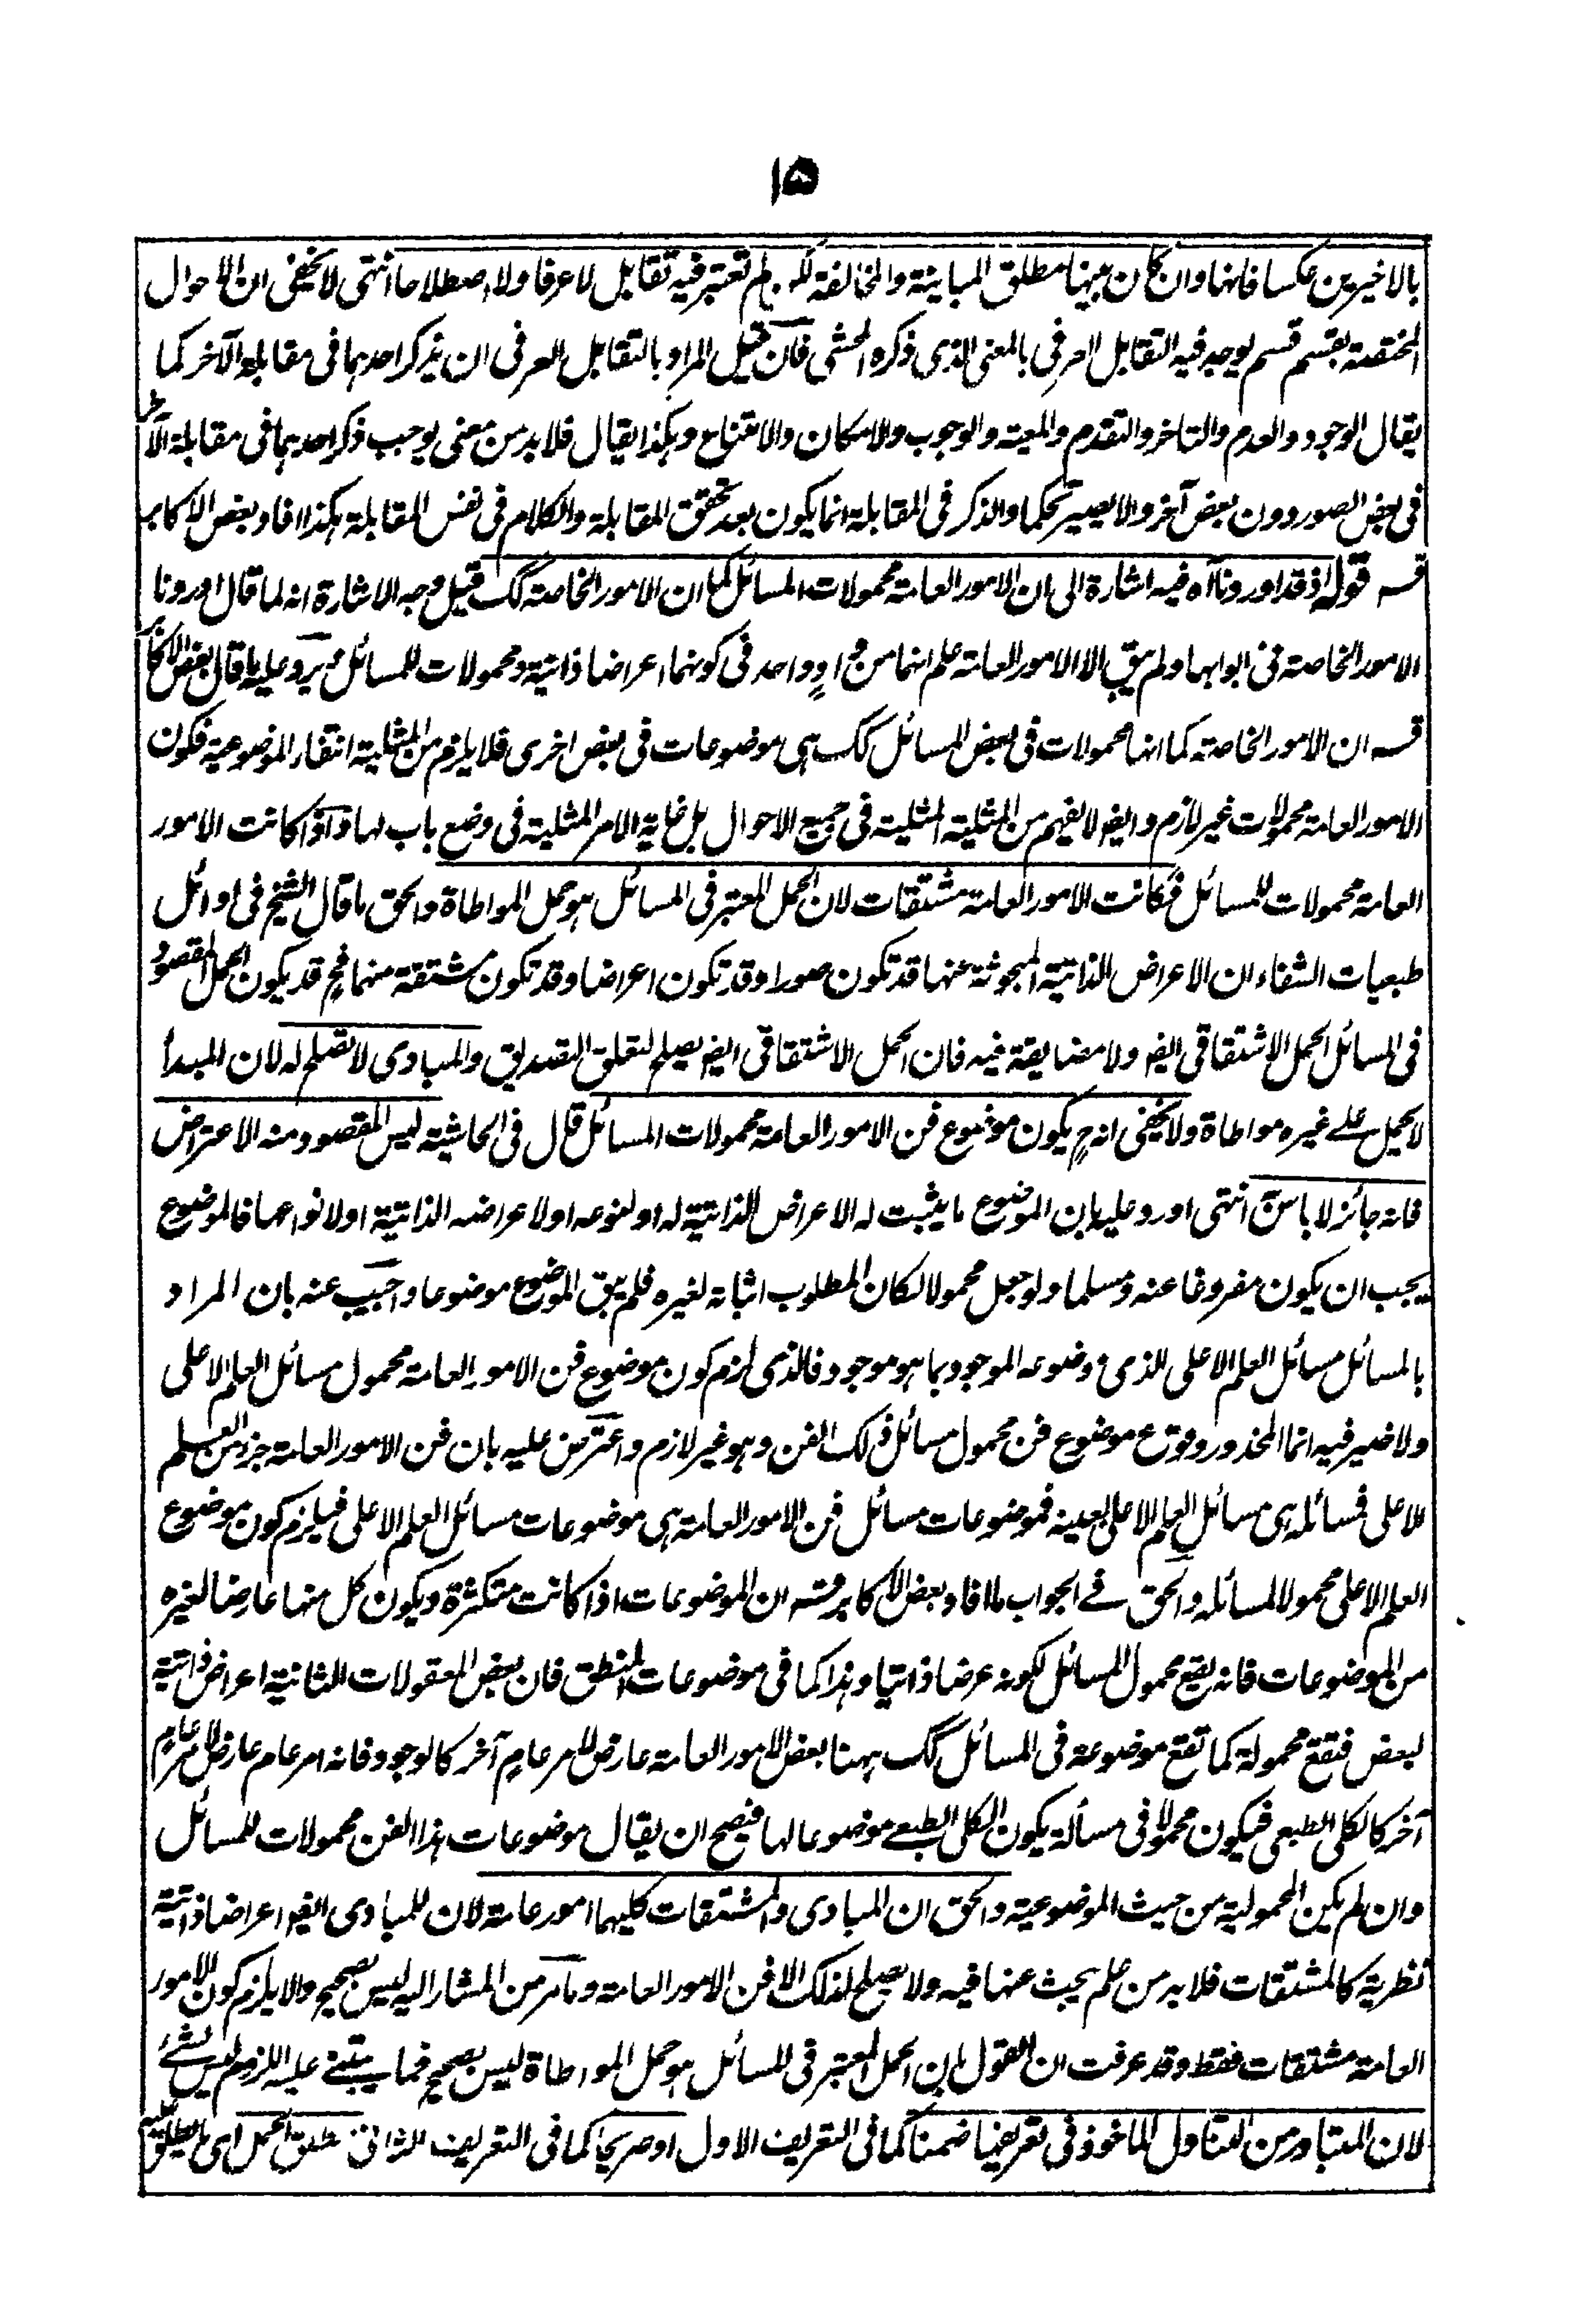 ١٥
بالاخيرين عكسا فانها وان كان بينها مطلق المباينة والمخالفة لكن لم تعتبر فيه تقابل لا عرفا ولا اصطلاحا انتهى لا يخفى ان الاحوال
المختصة بقسم قسم يوجد فيه التقابل العرفى بالمعنى الذى ذكره المحشى فان قيل المراد بالتقابل العرفى ان يذكر احدهما فى مقابلة الآخر كما
يقال الوجود والعدم والتاخر والتقدم والمعية والوجوب والامكان والامتناع وهكذا يقال فلا بد من معنى يوجب ذكر احدهما فى مقابلة الآخر
فى بعض الصور دون بعض آخر والا يصير تحكما والذكر فى المقابلة انما يكون بعد تحقق المقابلة والكلام فى نفس المقابلة هكذا افاد بعض الاكابر
قسه قوله اذ قد اوردنا آه فيه اشارة الى ان الامور العامة محمولات المسائل كما ان الامور الخاصة كك قيل وجه الاشارة انه لما قال اوردنا
الامور الخاصة فى ابوابها ولم يبق الا الامور العامة علم انهما من واد واحد فى كونهما اعراضا ذاتية ومحمولات للمسائل ويرد عليه ما قال بعض الاكابر
قسه ان الامور الخاصة كما انها محمولات فى بعض المسائل كك هى موضوعات فى بعض اخرى فلا يلزم من المثلية انتفاء الموضوعية فكون
الامور العامة محمولات غير لازم وايضا لا يفهم من المثلية المثلية فى جميع الاحوال بل غاية الامر المثلية فى وضع باب لها واذا كانت الامور
العامة محمولات للمسائل فكانت الامور العامة مشتقات لان الحمل المعتبر فى المسائل هو حمل المواطاة والحق ما قال الشيخ فى اوائل
طبعيات الشفاء ان الاعراض الذاتية المبحوثة عنها قد تكون صورا وقد تكون اعراضا وقد تكون مشتقة منهما فح قد يكون الحمل المقصود
فى المسائل الحمل الاشتقاقى ايضا ولا مضايقة فيه فان الحمل الاشتقاقى ايضا يصلح لتعلق التصديق والمبادى لا تصلح له لان المبدأ
لا يحمل على غيره مواطاة ولا يخفى انه ح يكون موضوع فن الامور العامة محمولات المسائل قال فى الحاشية ليس المقصود منه الاعتراض
فانه جائز لا باس انتهى اورد عليه بان الموضوع ما يثبت له الاعراض الذاتية له او لنوعه او لاعراضه الذاتية او لانواعها فالموضوع
يجب ان يكون مفروغا عنه ومسلما ولو جعل محمولا لكان المطلوب اثباته لغيره فلم يبق الموضوع موضوعا واجيب عنه بان المراد
بالمسائل مسائل العلم الاعلى الذى موضوعه الموجود بما هو موجود فالذى لزم كون موضوع فن الامور العامة محمول مسائل العلم الاعلى
ولا ضير فيه انما المحذور وقوع موضوع فن محمول مسائل ذلك الفن وهو غير لازم واعترض عليه بان فن الامور العامة جزء من العلم
الاعلى فمسائله هى مسائل العلم الاعلى بعينه فموضوعات مسائل فن الامور العامة هى موضوعات مسائل العلم الاعلى فيلزم كون موضوع
العلم الاعلى محمولا لمسائله والحق فى الجواب ما افاد بعض الاكابر قسه ان الموضوعات اذا كانت متكثرة ويكون كل منها عارضا لغيره
من الموضوعات فانه يقع محمول المسائل لكونه عرضا ذاتيا وهذا كما فى موضوعات المنطق فان بعض المعقولات الثانية اعراض ذاتية
لبعض فتقع محمولة كما تقع موضوعة فى المسائل كك ههنا بعض الامور العامة عارض للامر عام آخر كالوجود فانه امر عام عارض لامر عام
آخر كالكلى الطبعى فيكون محمولا فى مسألة يكون الكلى الطبعى موضوعا لها فيصح ان يقال موضوعات هذا الفن محمولات للمسائل
وان لم يكن المحمولية من حيث الموضوعية والحق ان المبادى والمشتقات كليهما امور عامة لان للمبادى ايضا اعراضا ذاتية
نظرية كالمشتقات فلا بد من علم يبحث عنها فيه ولا يصلح لذلك الا فن الامور العامة وما مر من المشار اليه ليس بصحيح والا يلزم كون الامور
العامة مشتقات فقط وقد عرفت ان القول بان الحمل المعتبر فى المسائل هو حمل المواطاة ليس بصحيح فما يبتنى عليه اللزوم ليس بشئ
لان المتبادر من التناول الماخوذ فى تعريفها ضمنا كما فى التعريف الاول او صريحا كما فى التعريف الثانى مطلق الحمل اى ما يطلق